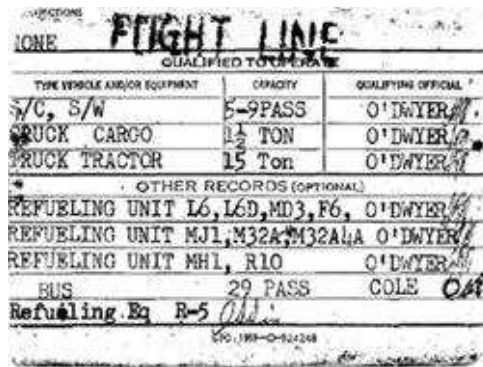 NONE FLIGHT LINE
QUALIFIED TO OPERATE
TYPE VEHICLE AND/OR EQUIPMENT CAPACITY QUALIFYING OFFICIAL
S/C, S/W 5-9PASS O'DWYER
TRUCK CARGO 1½ TON O'DWYER
TRUCK TRACTOR 15 Ton O'DWYER
OTHER RECORDS (OPTIONAL)
REFUELING UNIT L6,L6D,MD3,F6, O'DWYER
REFUELING UNIT MJ1,M32A,M32A4A O'DWYER
REFUELING UNIT MH1, R10 O'DWYER
BUS 29 PASS COLE
Refueling Eq R-5